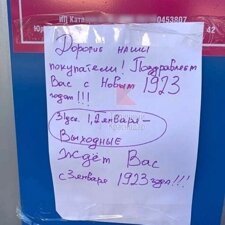 ИП Ката
0453807
Юр
42
Дорогие наши
покупатели! Поздравляем
Вас с Новым 1923
годом!!!
31дек. 1, 2 января –
Выходные
Ждём Вас
с 3 января 1923 года!!!